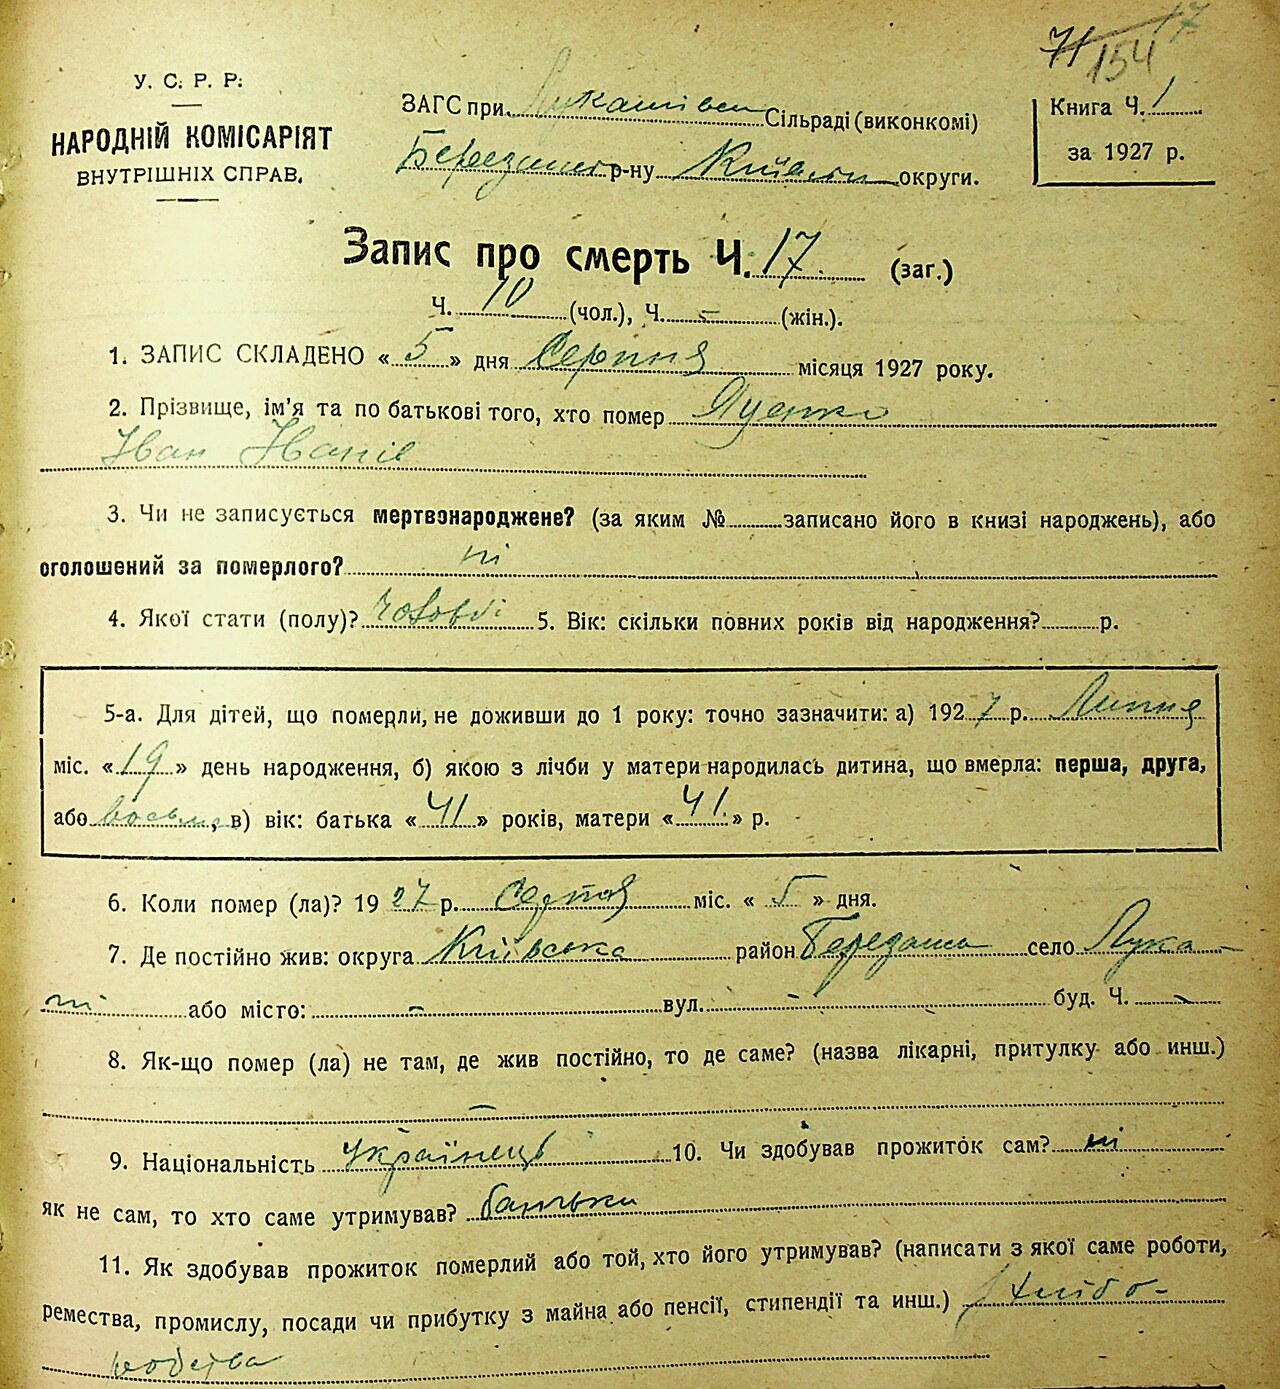 71 17
154
У. С. Р. Р.
НАРОДНІЙ КОМІСАРІЯТ
ВНУТРІШНІХ СПРАВ.
ЗАГС при Лукашівськ Сільраді (виконкомі)
р-ну Київськ округи.
Книга Ч. 1
за 1927 р.
Запис про смерть Ч. 17 (заг.)
Ч. 10 (чол.), Ч. - (жін.).
1. ЗАПИС СКЛАДЕНО « 5 » дня Серпня місяця 1927 року.
2. Прізвище, ім'я та по батькові того, хто помер Яценко
Іван Іванів
3. Чи не записується мертвонароджене? (за яким № записано його в книзі народжень), або
оголошений за померлого? ні
4. Якої стати (полу)? 5. Вік: скільки повних років від народження? р.
5-а. Для дітей, що померли, не доживши до 1 року: точно зазначити: а) 1927 р. Липня
міс. « 19 » день народження, б) якою з лічби у матери народилась дитина, що вмерла: перша, друга,
або восьма, в) вік: батька « 41 » років, матери « 41 » р.
6. Коли помер (ла)? 1927 р. Серпня міс. « 5 » дня.
7. Де постійно жив: округа Київська район село Лука-
ші або місто: - вул. - буд. Ч. -
8. Як-що помер (ла) не там, де жив постійно, то де саме? (назва лікарні, притулку або инш.)
-
9. Національність Українець 10. Чи здобував прожиток сам? ні
як не сам, то хто саме утримував? батьки
11. Як здобував прожиток померлий або той, хто його утримував? (написати з якої саме роботи,
ремества, промислу, посади чи прибутку з майна або пенсії, стипендії та инш.) Хлібо-
робства